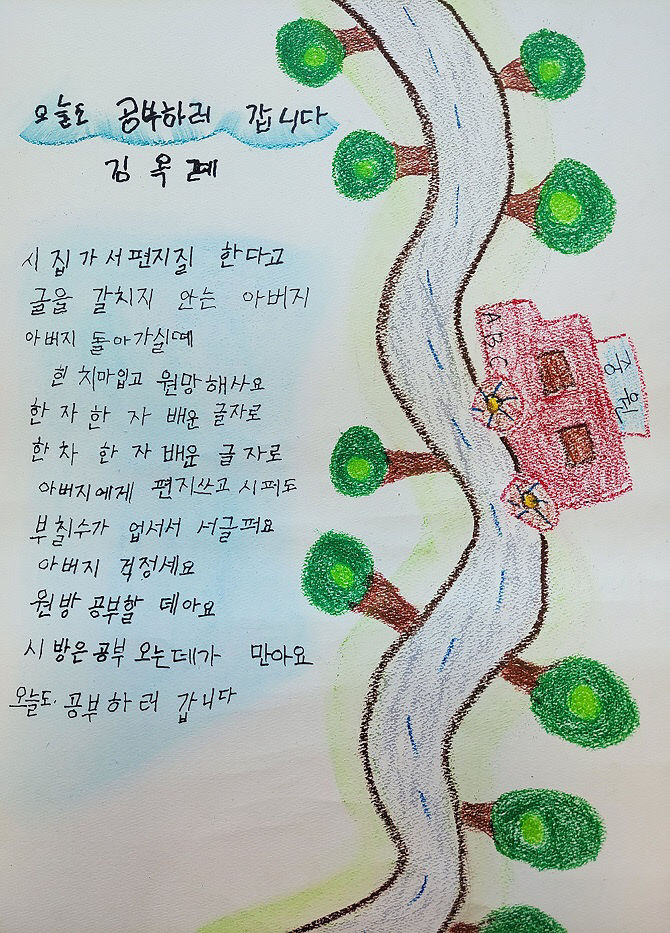 오늘도 공부하러 갑니다
김옥례
시집가서 편지질 한다고
글을 갈치지 안는 아버지
아버지 돌아가실때
힌 치마입고 원망해사요
한 자 한 자 배운 글자로
한 차 한 자 배운 글자로
아버지에게 편지쓰고 시퍼도
부칠수가 업서서 서글퍼요
아버지 걱정세요
원방 공부할 데아요
시방은 공부 오는데가 만아요
오늘도 공부하러 갑니다
ABC
중원